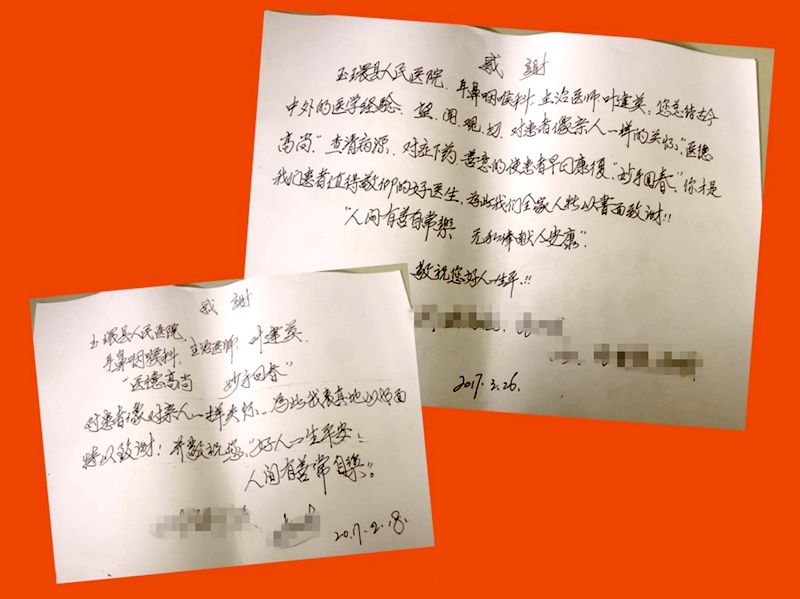 感 謝
玉環县人民医院,耳鼻咽喉科,主治医师叶建英,您总结古今
中外的医学经验、望、闻、观、切、对患者像亲人一样的关怀,“医德
高尚”查清病源、对症下药、善意的使患者早日康復,“妙手回春”,你才是
我们患者值得敬仰的好医生,為此我们全家人特以書面致谢!!
“人间有善自常樂 无私奉献人安康”
敬祝您好人一生平!!
2017.3.26.
感 謝
玉環县人民医院,
耳鼻咽喉科,主治医师,叶建英
“医德高尚 妙手回春”
对患者像对亲人一样关怀、為此我真地以书面
特以致谢!并敬祝您,“好人一生平安;
人间有善常自樂。”
2017.2.18.